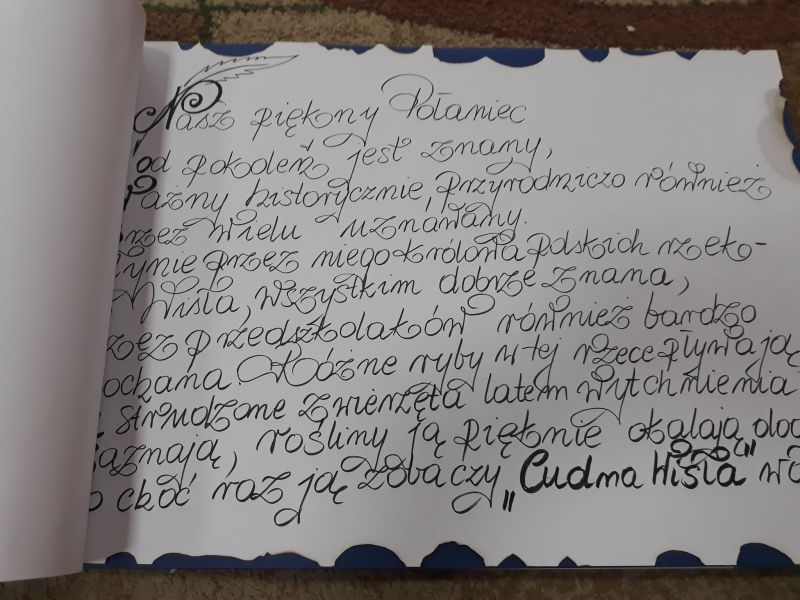 Nasz piękny Połaniec
od pokoleń jest znany,
Ważny historycznie, przyrodniczo również
przez wielu uznawany.
łynie przez niego królowa polskich rzek-
Wisła, wszystkim dobrze znana,
rzez przedszkolaków również bardzo
ochana. Różne ryby w tej rzece pływają
strudzone zwierzęta latem wytchnienia
aznają, rośliny ją pięknie okalają
choć raz ją zobaczy „Cudna Wisła"